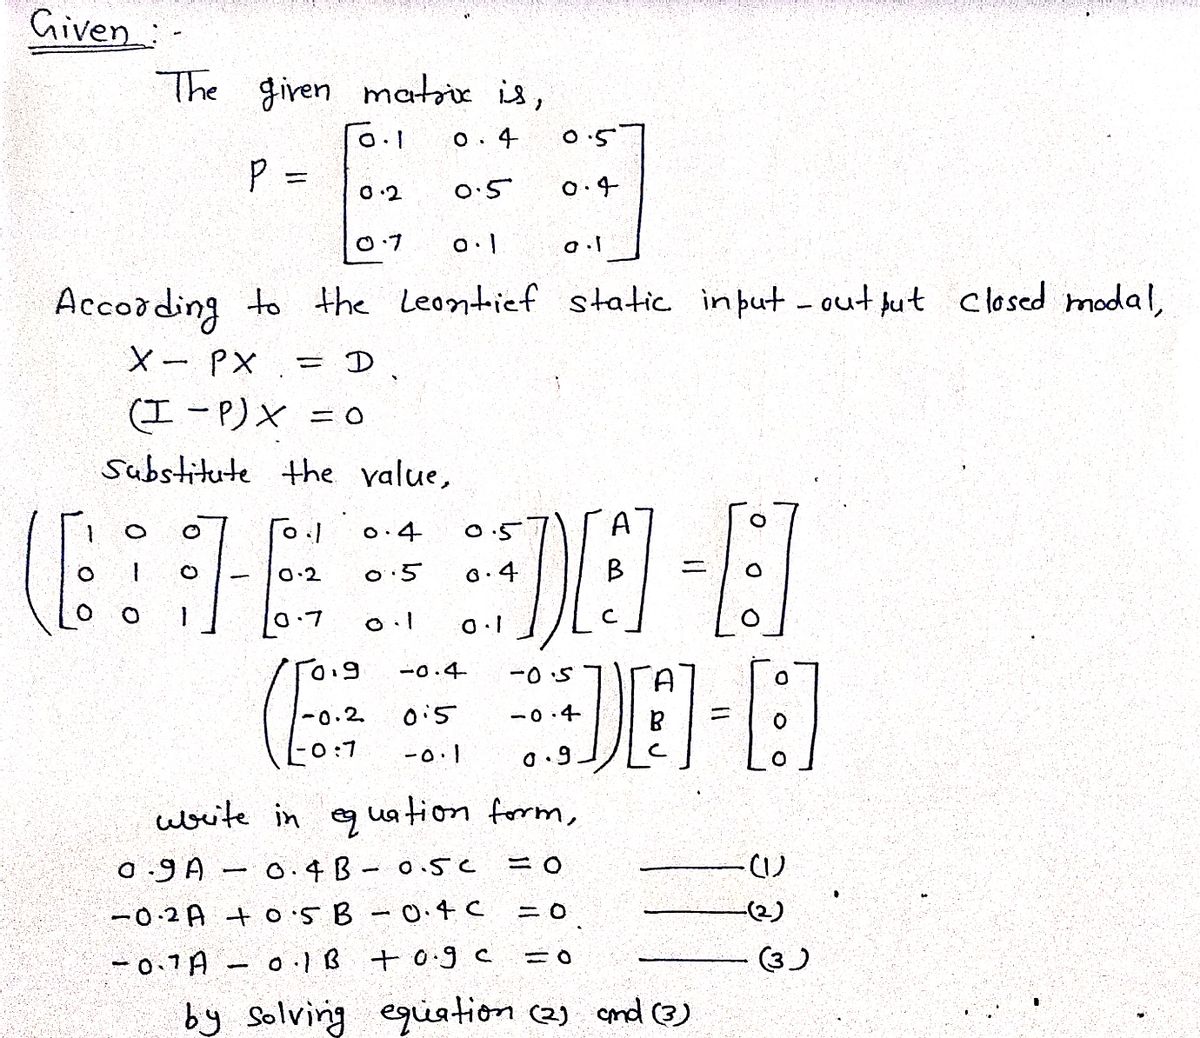 Given :-
The given matrix is,
P = [0.1 0.4 0.5
0.2 0.5 0.4
0.7 0.1 0.1]
According to the Leontief static input-output closed modal,
X - PX = D
(I - P)X = 0
Substitute the value,
([1 0 0 0 1 0 0 0 1] - [0.1 0.4 0.5 0.2 0.5 0.4 0.7 0.1 0.1]) [A B C] = [0 0 0]
([0.9 -0.4 -0.5 -0.2 0.5 -0.4 -0.7 -0.1 0.9]) [A B C] = [0 0 0]
write in equation form,
0.9A - 0.4B - 0.5C = 0 ——— (1)
-0.2A + 0.5B - 0.4C = 0 ——— (2)
-0.7A - 0.1B + 0.9C = 0 ——— (3)
by solving equation (2) and (3)